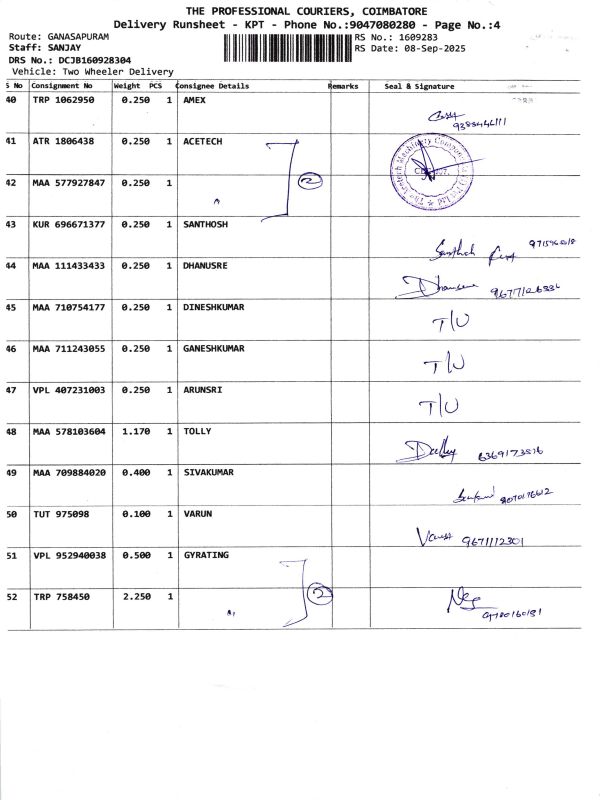 THE PROFESSIONAL COURIERS, COIMBATORE
Delivery Runsheet - KPT - Phone No.:9047080280 - Page No.:4
Route: GANASAPURAM
RS No.: 1609283
Staff: SANJAY
RS Date: 08-Sep-2025
DRS No.: DCJB160928304
Vehicle: Two Wheeler Delivery
S No Consignment No Weight PCS Consignee Details Remarks Seal & Signature
40 TRP 1062950 0.250 1 AMEX
41 ATR 1806438 0.250 1 ACETECH
2
42 MAA 577927847 0.250 1
43 KUR 696671377 0.250 1 SANTHOSH
Santhosh
44 MAA 111433433 0.250 1 DHANUSRE
Dhanusre
45 MAA 710754177 0.250 1 DINESHKUMAR
T/U
46 MAA 711243055 0.250 1 GANESHKUMAR
T/U
47 VPL 407231003 0.250 1 ARUNSRI
T/U
48 MAA 578103604 1.170 1 TOLLY
49 MAA 709884020 0.400 1 SIVAKUMAR
50 TUT 975098 0.100 1 VARUN
9671112301
51 VPL 952940038 0.500 1 GYRATING
2
52 TRP 758450 2.250 1